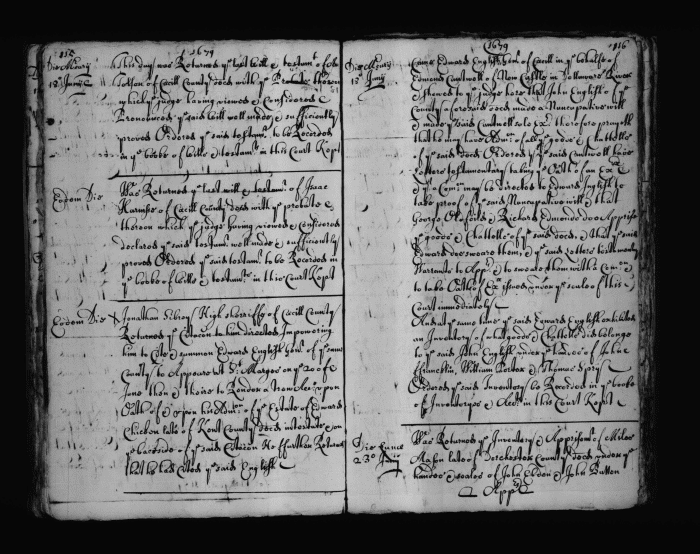 115 1679
Die Mercury this day was Returned ye last will & testamt of
of Cecill County decd with ye Probate thereon
12º Junij which ye judge having viewed & Considered
Pronounced ye said will well made & sufficiently
proved Ordered ye said testamt to be Recorded
in ye booke of wills & testamts in this Court Kept
Eodem Die Was Returned ye last will & testamt of Isaac
Harmse of Cecill County decd with ye probate
thereon which ye judge having viewed & Considered
declared ye said testamt well made & sufficiently
proved Ordered ye said testamt to be Recorded in
ye booke of wills & testamts in this Court Kept
Eodem Die Jonathan Sibrey High sherriffe of Cecill County
Returned ye Citacon to him directed Impowering
him to Cite & summon Edward English Gent of ye same
County to Appeare at St Maryes on ye 20 of
June then & there to Render a true Acct upon
Oath of & upon his Admon of ye Estate of Edward
Chicken late of Kent County decd intestate on
ye backside of ye said Citacon He Returned
that he had Cited ye said English
1679 116
Die Mercury Came Edward English Gent of Cecill in ye behalfe of
Edmond Cantwell of New Castle in Dellaware River
12º Junij & shewed to ye judge here that John English of ye
County aforesaid decd made a Nuncupative will
& made ye said Cantwell sole Exr therefore prayeth
that he may have Admon of all ye goods & chattells
of ye said decd Ordered ye said Cantwell have
letters testamentary taking ye Oath of an Exr
& ye Comn may be directed to Edward English to
take proof of ye said Nuncupative will & that
George Oldfield & Richard Edmonds doe Apprise
ye goods & Chattells of ye said decd, & that ye said
Edward doe sweare them; ye said letters testamentary
Warrants to Appr & to sweare them with a Comn
to take Oath of Exr issued under ye seale of this
Court immediately
And at ye same time ye said Edward English exhibited
an Inventory of what goods & Chattells did belonge
to ye said John English under ye hands of John
William Porter & Thomas Spry
Ordered ye said Inventory be Recorded in ye booke
of Inventorys & Accts in this Court Kept
Die Lunæ Was Returned ye Inventory & Apprisemt of Miles
23º Junij Mason late of Dorchester County decd under ye
hands & seales of John & John Button
Apprs